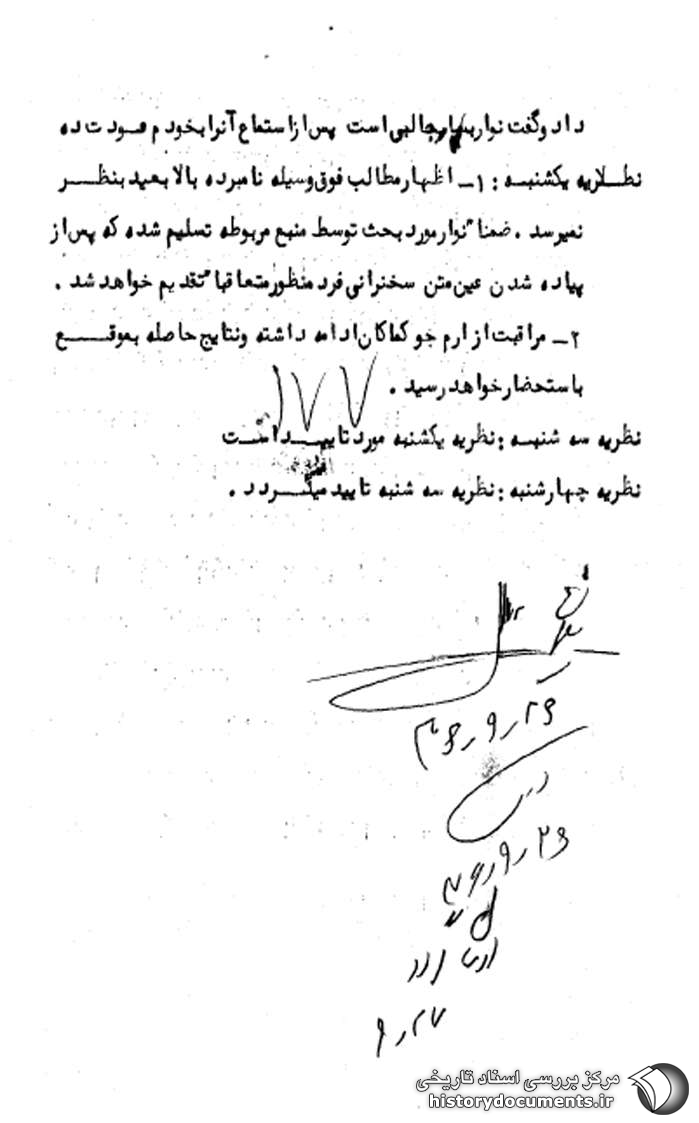 داد و گفت نوار بسیار جالبی است پس از استماع آنرا بخودم عودت ده
نظریه یکشنبه : ۱- اظهار مطالب فوق وسیله نامبرده بالا بعید بنظر
نمیرسد . ضمنا" نوار مورد بحث توسط منبع مربوطه تسلیم شده که پس از
پیاده شدن عین متن سخنرانی فرد منظور متعاقبا" تقدیم خواهد شد .
۲- مراقبت از ارم جو کماکان ادامه داشته و نتایج حاصله بموقع
باستحضار خواهد رسید .
۱۷۷
نظریه سه شنبه : نظریه یکشنبه مورد تایید است
نظریه چهارشنبه : نظریه سه شنبه تایید میگردد .
مرکز بررسی اسناد تاریخی
historydocuments.ir